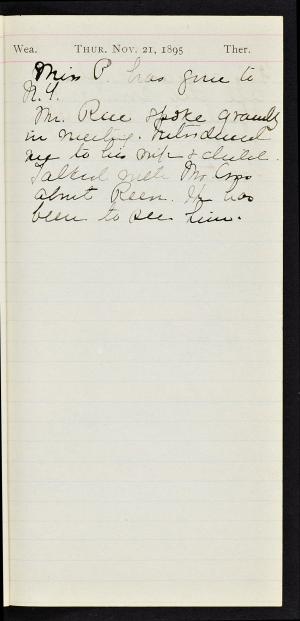 Wea. THUR. NOV. 21, 1895 Ther.
Miss P. has gone to
N.Y.
Mr. Rice spoke grandly
in meeting. Introduced
me to his wife & child.
Talked with Mr
about Reen. He has
been to see him.